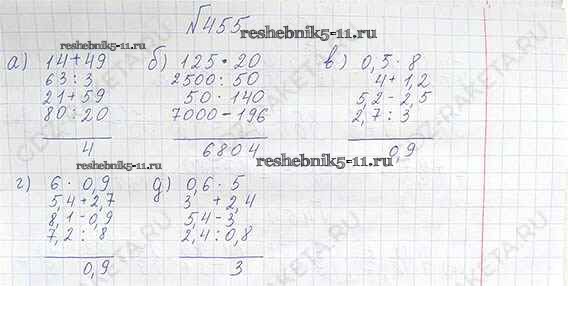 №455
reshebnik5-11.ru
а) 14+49
63:3
21+59
80:20
4
б) 125·20
2500:50
50·140
7000-196
6804
в) 0,5·8
4+1,2
5,2-2,5
2,7:3
0,9
reshebnik5-11.ru
reshebnik5-11.ru
г) 6·0,9
5,4+2,7
8,1-0,9
7,2:8
0,9
д) 0,6·5
3+2,4
5,4-3
2,4:0,8
3
GDZ-RAKETA.RU